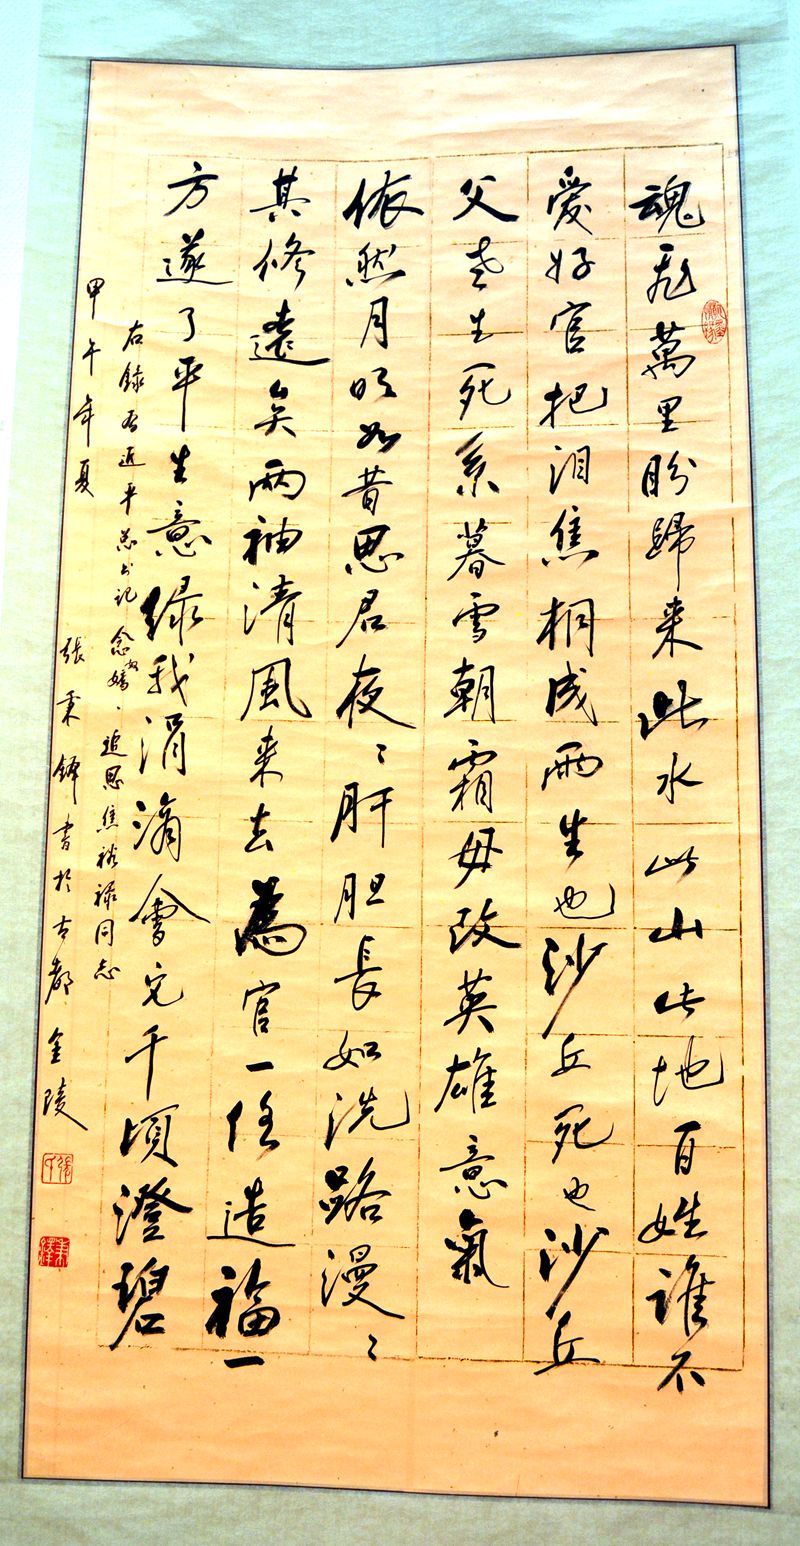 魂飛萬里盼歸来此水此山此地百姓誰不
愛好官把泪焦桐成雨生也沙丘死也沙丘
父老生死系暮雪朝霜毋改英雄意氣
依然月明如昔思君夜〻肝胆長如洗路漫〻
其修遠矣兩袖清風来去為官一任造福一
方遂了平生意绿我涓滴會它千頃澄碧
右錄習近平总书记念奴嬌·追思焦裕禄同志
甲午年夏 張秉鐸書於古都金陵